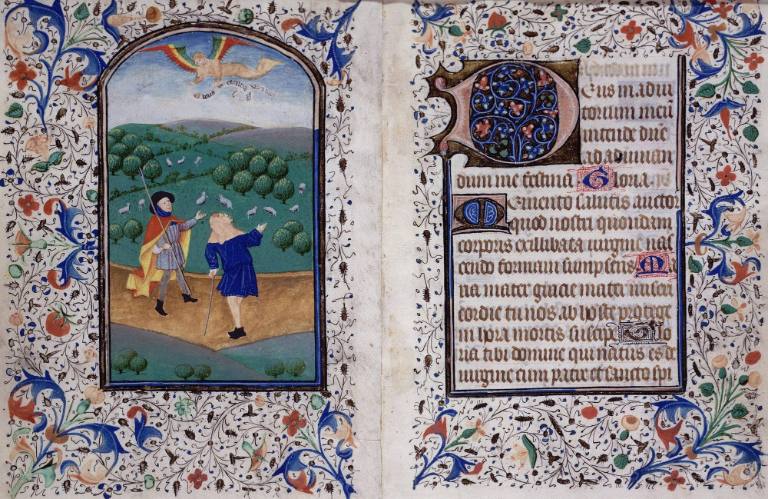 in excelsis
Deus in adiu
torium meū
intende dn̄e
ad adiuuan
dum me festina Gloria
Memento salutis aucto
quod nostri quondam
corporis ex illibata uirgine nas
cendo formam sumpseris Ma
ria mater gracie mater miseri
cordie tu nos ab hoste protege
in hora mortis suscipe Glo
ria tibi domine qui natus es de
uirgine cum patre et sancto spi